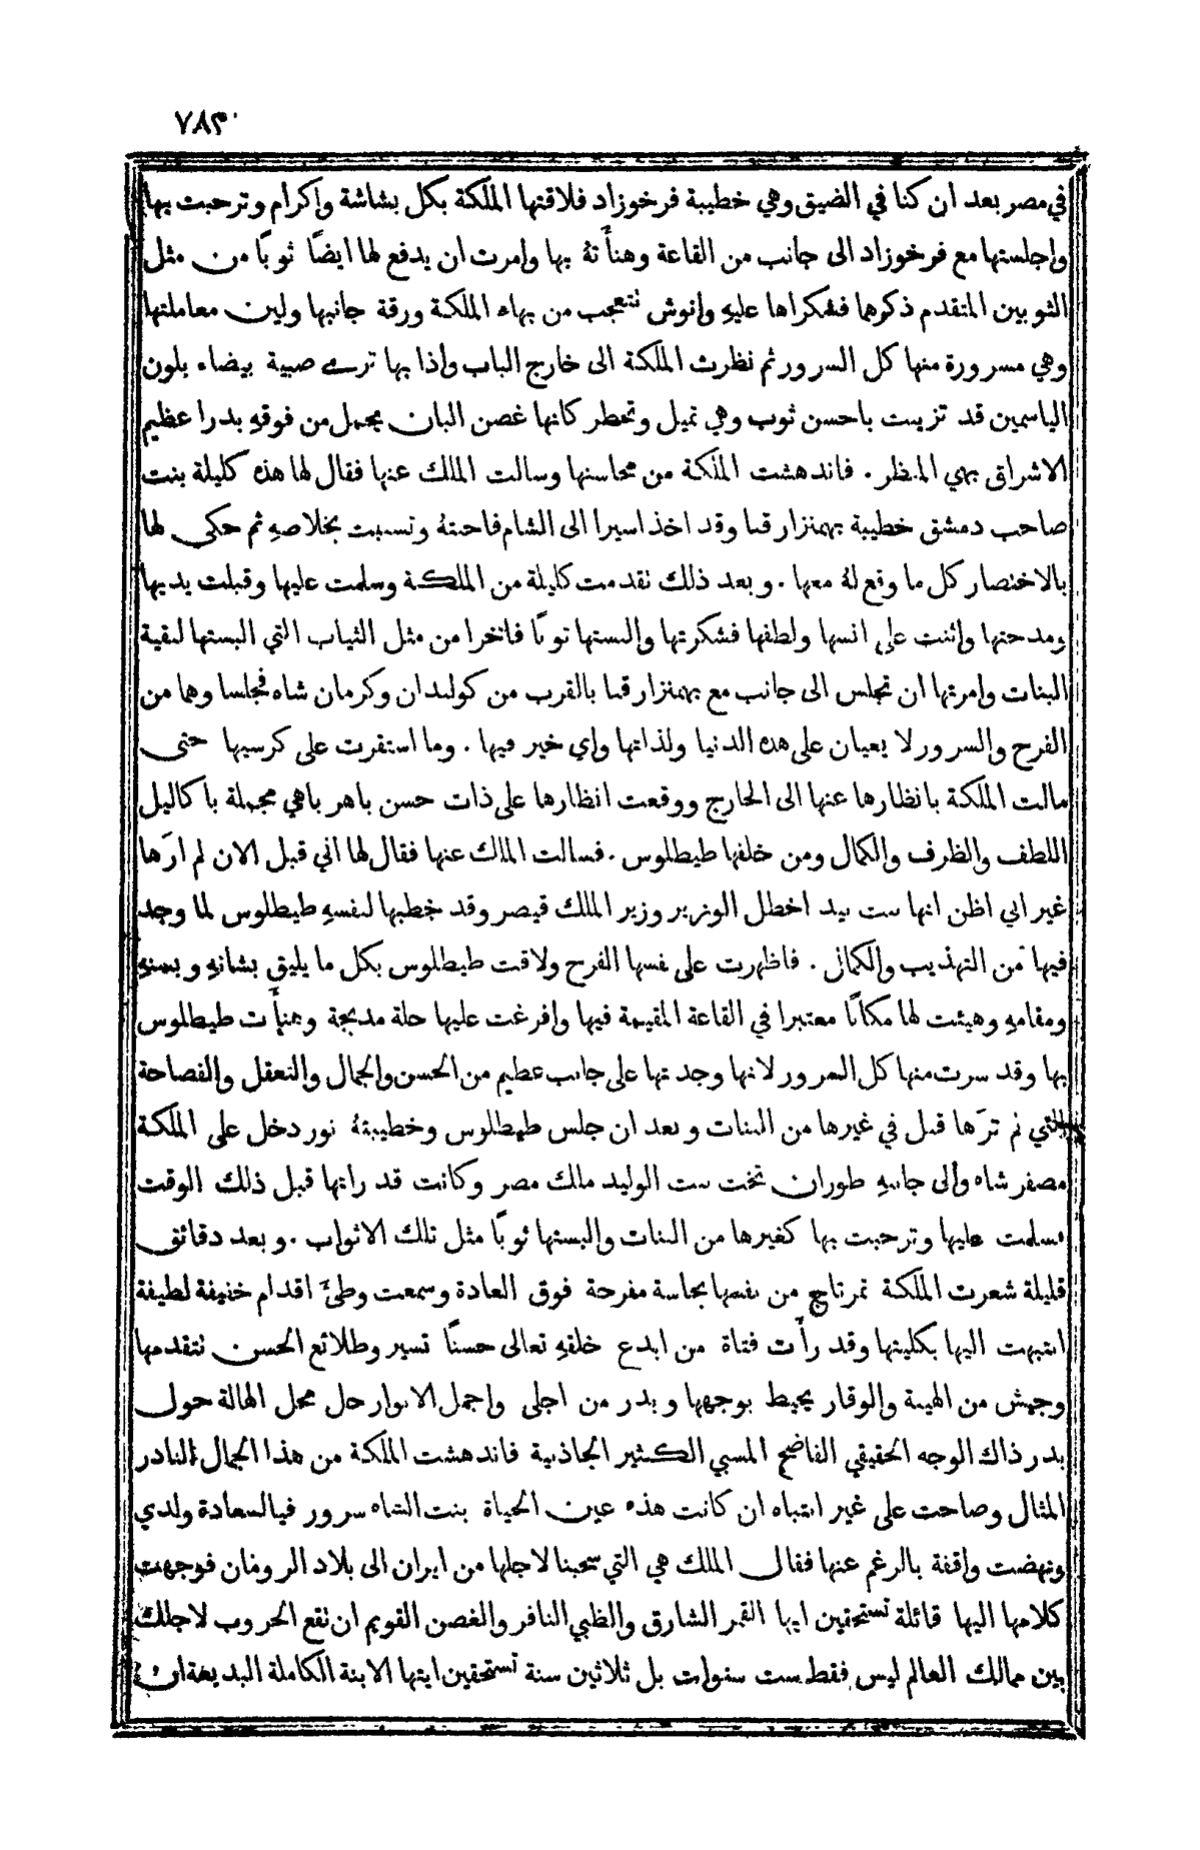 ٧٨٣
في مصر بعد ان كنا في الضيق وهي خطيبة فرخوزاد فلاقتها الملكة بكل بشاشة وإكرام وترحبت بها
وإجلستها مع فرخوزاد الى جانب من القاعة وهنأتهُ بها وامرت ان يدفع لها ايضًا ثوبًا من مثل
الثوبين المتقدم ذكرها فشكراها عليهِ وإنوش تتعجب من بهاء الملكة ورقة جانبها ولين معاملتها
وهي مسرورة منها كل السرور ثم نظرت الملكة الى خارج الباب وإذا بها ترى صبية بيضاء بلون
الياسمين قد تزينت باحسن ثوب وهي تميل وتخطر كانها غصن البان يحمل من فوقهِ بدرا عظيم
الاشراق بهي المنظر. فاندهشت الملكة من محاسنها وسالت الملك عنها فقال لها هذه كليلة بنت
صاحب دمشق خطيبة بهمنزار قبا وقد اخذ اسيرا الى الشام فاحبتهُ وتسببت بخلاصهِ ثم حكى لها
بالاختصار كل ما وقع لهُ معها. وبعد ذلك تقدمت كليلة من الملكة وسلمت عليها وقبلت يديها
ومدحتها وإثنت على انسها ولطفها فشكرتها وإلبستها ثوبًا فاخرا من مثل الثياب التي البستها لبقية
البنات وإمرتها ان تجلس الى جانب مع بهمنزار قبا بالقرب من كولندان وكرمان شاه فجلسا وهما من
الفرح والسرور لا يعيان على هذه الدنيا ولذاتها وإي خير فيها. وما استقرت على كرسيها حتى
مالت الملكة بانظارها عنها الى الخارج ووقعت انظارها على ذات حسن باهر باهي مجملة باكاليل
اللطف والظرف والكمال ومن خلفها طيطلوس. فسالت الملك عنها فقال لها اني قبل الان لم ارَها
غير اني اظن انها ست بيد اخطل الوزير وزير الملك قيصر وقد خطبها لنفسهِ طيطلوس لما وجد
فيها من التهذيب والكمال. فاظهرت على نفسها الفرح ولاقت طيطلوس بكل ما يليق بشانهِ وبسنهِ
ومقامهِ وهيئت لها مكانًا معتبرا في القاعة المقيمة فيها وإفرغت عليها حلة مدبجة وهنأت طيطلوس
بها وقد سرت منها كل السرور لانها وجدتها على جانب عظيم من الحسن والجمال والتعقل والفصاحة
التي لم ترَها قبل في غيرها من البنات وبعد ان جلس طيطلوس وخطيبتهُ نور دخل على الملكة
مصفر شاه وإلى جانبهِ طوران تخت بنت الوليد ملك مصر وكانت قد راتها قبل ذلك الوقت
فسلمت عليها وترحبت بها كغيرها من البنات وإلبستها ثوبًا مثل تلك الاثواب. وبعد دقائق
قليلة شعرت الملكة تمرتاج من نفسها بحاسة مفرحة فوق العادة وسمعت وطئَ اقدام خفيفة لطيفة
انتبهت اليها بكليتها وقد رأت فتاة من ابدع خلقهِ تعالى حسنًا تسير وطلائع الحسن تتقدمها
وجيش من الهيبة والوقار يحيط بوجهها وبدر من اجلى وإجمل الانوار حل محل الهالة حول
بدر ذاك الوجه الحقيقي الفاضح المسبي الكثير الجاذبية فاندهشت الملكة من هذا الجمال النادر
المثال وصاحت على غير انتباه ان كانت هذه عين الحياة بنت الشاه سرور فيالسعادة ولدي
ونهضت وإقفة بالرغم عنها فقال الملك هي التي سحبنا لاجلها من ايران الى بلاد الرومان فوجهت
كلامها اليها قائلة تستحقين ايها القمر الشارق والظبي النافر والغصن القويم ان تقع الحروب لاجلك
بين ممالك العالم ليس فقط ست سنوات بل ثلاثين سنة تستحقين ايتها الابنة الكاملة البديعة ان